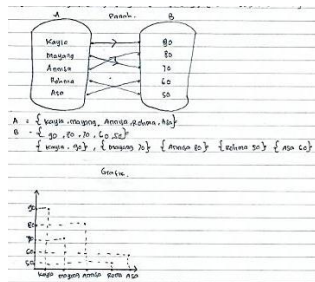 A Panah. B
Kayla 90
Mayang 80
Annisa 70
Rahma 60
Asa 50
A = { Kayla, mayang, Annisa, Rahma, Asa }
B = { 90, 80, 70, 60, 50 }
{ Kayla, 90 } { Mayang 70 } { Annisa 80 } { Rahma 50 } { Asa 60 }
Grafik.
90
80
70
60
50
Kayla mayang Annisa Rama Asa